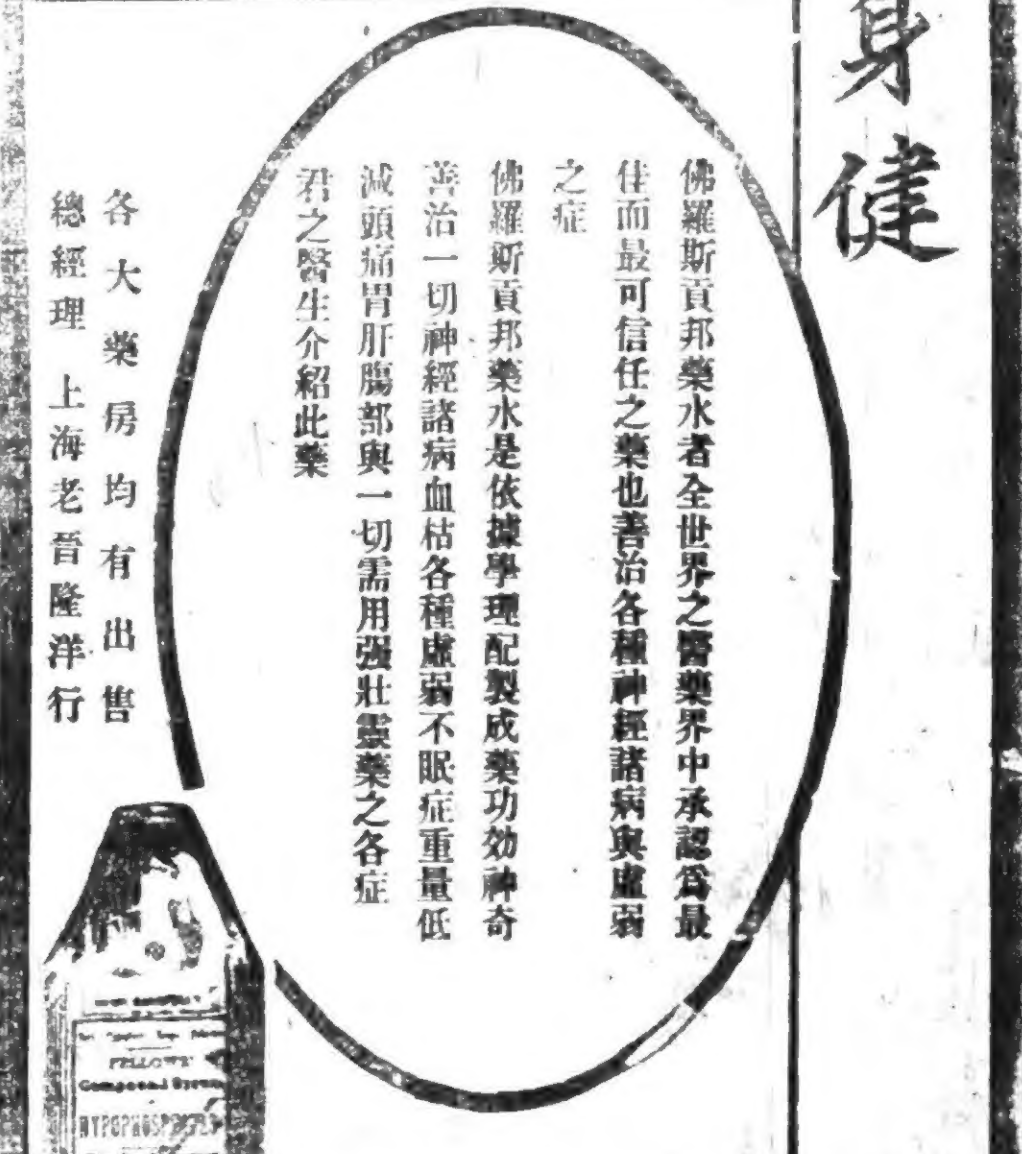 身健
佛羅斯貢邦藥水者全世界之醫藥界中承認爲最
佳而最可信任之藥也善治各種神經諸病與虛弱
之症
佛羅斯貢邦藥水是依據學理配製成藥功効神奇
善治一切神經諸病血枯各種虛弱不眠症重量低
減頭痛胃肝腸部與一切需用强壯靈藥之各症
君之醫生介紹此藥
各大藥房均有出售
總經理 上海老晉隆洋行
FELLOWS'
Compound Syrup
HYPOPHOSPHITES